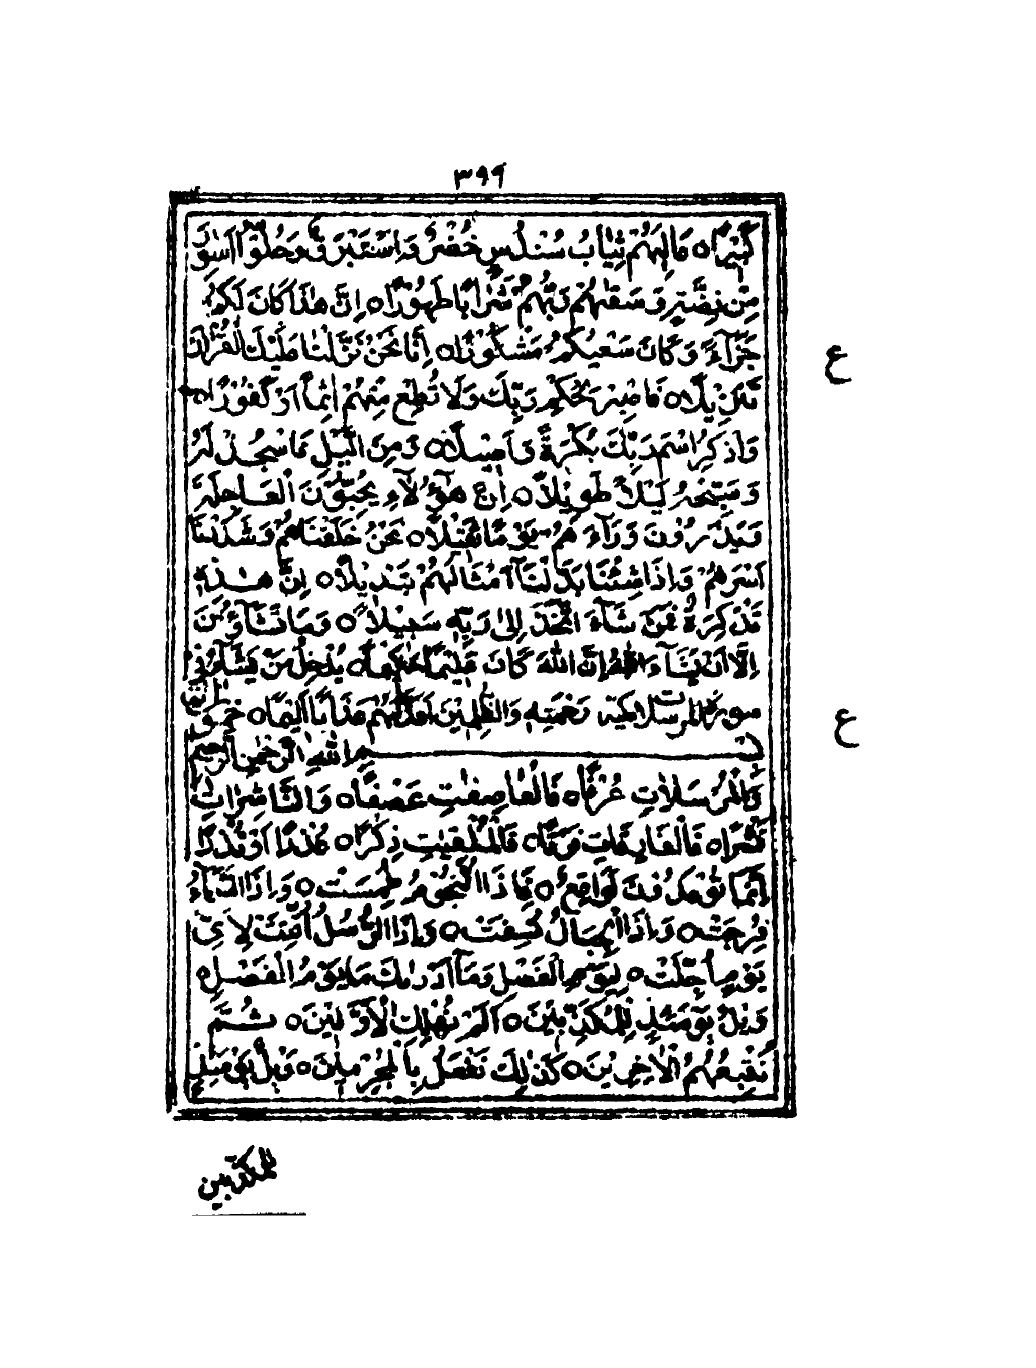 ٣٩٩
كَبِيْرًا ٥ عَالِيَهُمْ ثِيَابُ سُنْدُسٍ خُضْرٌ وَاِسْتَبْرَقٌ وَحُلُّوْا اَسَاوِرَ
مِنْ فِضَّةٍ وَسَقٰهُمْ رَبُّهُمْ شَرَابًا طَهُوْرًا ٥ اِنَّ هٰذَا كَانَ لَكُمْ
جَزَآءً وَكَانَ سَعْيُكُمْ مَشْكُوْرًا ٥ اِنَّا نَحْنُ نَزَّلْنَا عَلَيْكَ الْقُرْاٰنَ
تَنْزِيْلًا ٥ فَاصْبِرْ لِحُكْمِ رَبِّكَ وَلَا تُطِعْ مِنْهُمْ اٰثِمًا اَوْ كَفُوْرًا ٥
وَاذْكُرِ اسْمَ رَبِّكَ بُكْرَةً وَاَصِيْلًا ٥ وَمِنَ الَّيْلِ فَاسْجُدْ لَهُ
وَسَبِّحْهُ لَيْلًا طَوِيْلًا ٥ اِنَّ هٰٓؤُلَآءِ يُحِبُّوْنَ الْعَاجِلَةَ
وَيَذَرُوْنَ وَرَآءَهُمْ يَوْمًا ثَقِيْلًا ٥ نَحْنُ خَلَقْنَاهُمْ وَشَدَدْنَا
اَسْرَهُمْ وَاِذَا شِئْنَا بَدَّلْنَآ اَمْثَالَهُمْ تَبْدِيْلًا ٥ اِنَّ هٰذِهٖ
تَذْكِرَةٌ فَمَنْ شَآءَ اتَّخَذَ اِلٰى رَبِّهٖ سَبِيْلًا ٥ وَمَا تَشَآؤُنَ
اِلَّا اَنْ يَشَآءَ اللّٰهُ اِنَّ اللّٰهَ كَانَ عَلِيْمًا حَكِيْمًا ٥ يُدْخِلُ مَنْ يَشَآءُ فِىْ
سورة المرسلات مكية رَحْمَتِهٖ وَالظّٰلِمِيْنَ اَعَدَّ لَهُمْ عَذَابًا اَلِيْمًا ٥
بِسْمِ اللّٰهِ الرَّحْمٰنِ الرَّحِيْمِ
وَالْمُرْسَلَاتِ عُرْفًا ٥ فَالْعَاصِفٰتِ عَصْفًا ٥ وَالنَّاشِرَاتِ
نَشْرًا ٥ فَالْفَارِقَاتِ فَرْقًا ٥ فَالْمُلْقِيٰتِ ذِكْرًا ٥ عُذْرًا اَوْ نُذْرًا
اِنَّمَا تُوْعَدُوْنَ لَوَاقِعٌ ٥ فَاِذَا النُّجُوْمُ طُمِسَتْ ٥ وَاِذَا السَّمَآءُ
فُرِجَتْ ٥ وَاِذَا الْجِبَالُ نُسِفَتْ ٥ وَاِذَا الرُّسُلُ اُقِّتَتْ لِاَىِّ
يَوْمٍ اُجِّلَتْ ٥ لِيَوْمِ الْفَصْلِ وَمَآ اَدْرٰىكَ مَا يَوْمُ الْفَصْلِ ٥
وَيْلٌ يَوْمَئِذٍ لِلْمُكَذِّبِيْنَ ٥ اَلَمْ نُهْلِكِ الْاَوَّلِيْنَ ٥ ثُمَّ
نُتْبِعُهُمُ الْاٰخِرِيْنَ ٥ كَذٰلِكَ نَفْعَلُ بِالْمُجْرِمِيْنَ ٥ وَيْلٌ يَوْمَئِذٍ
للمكذبين
ع
ع